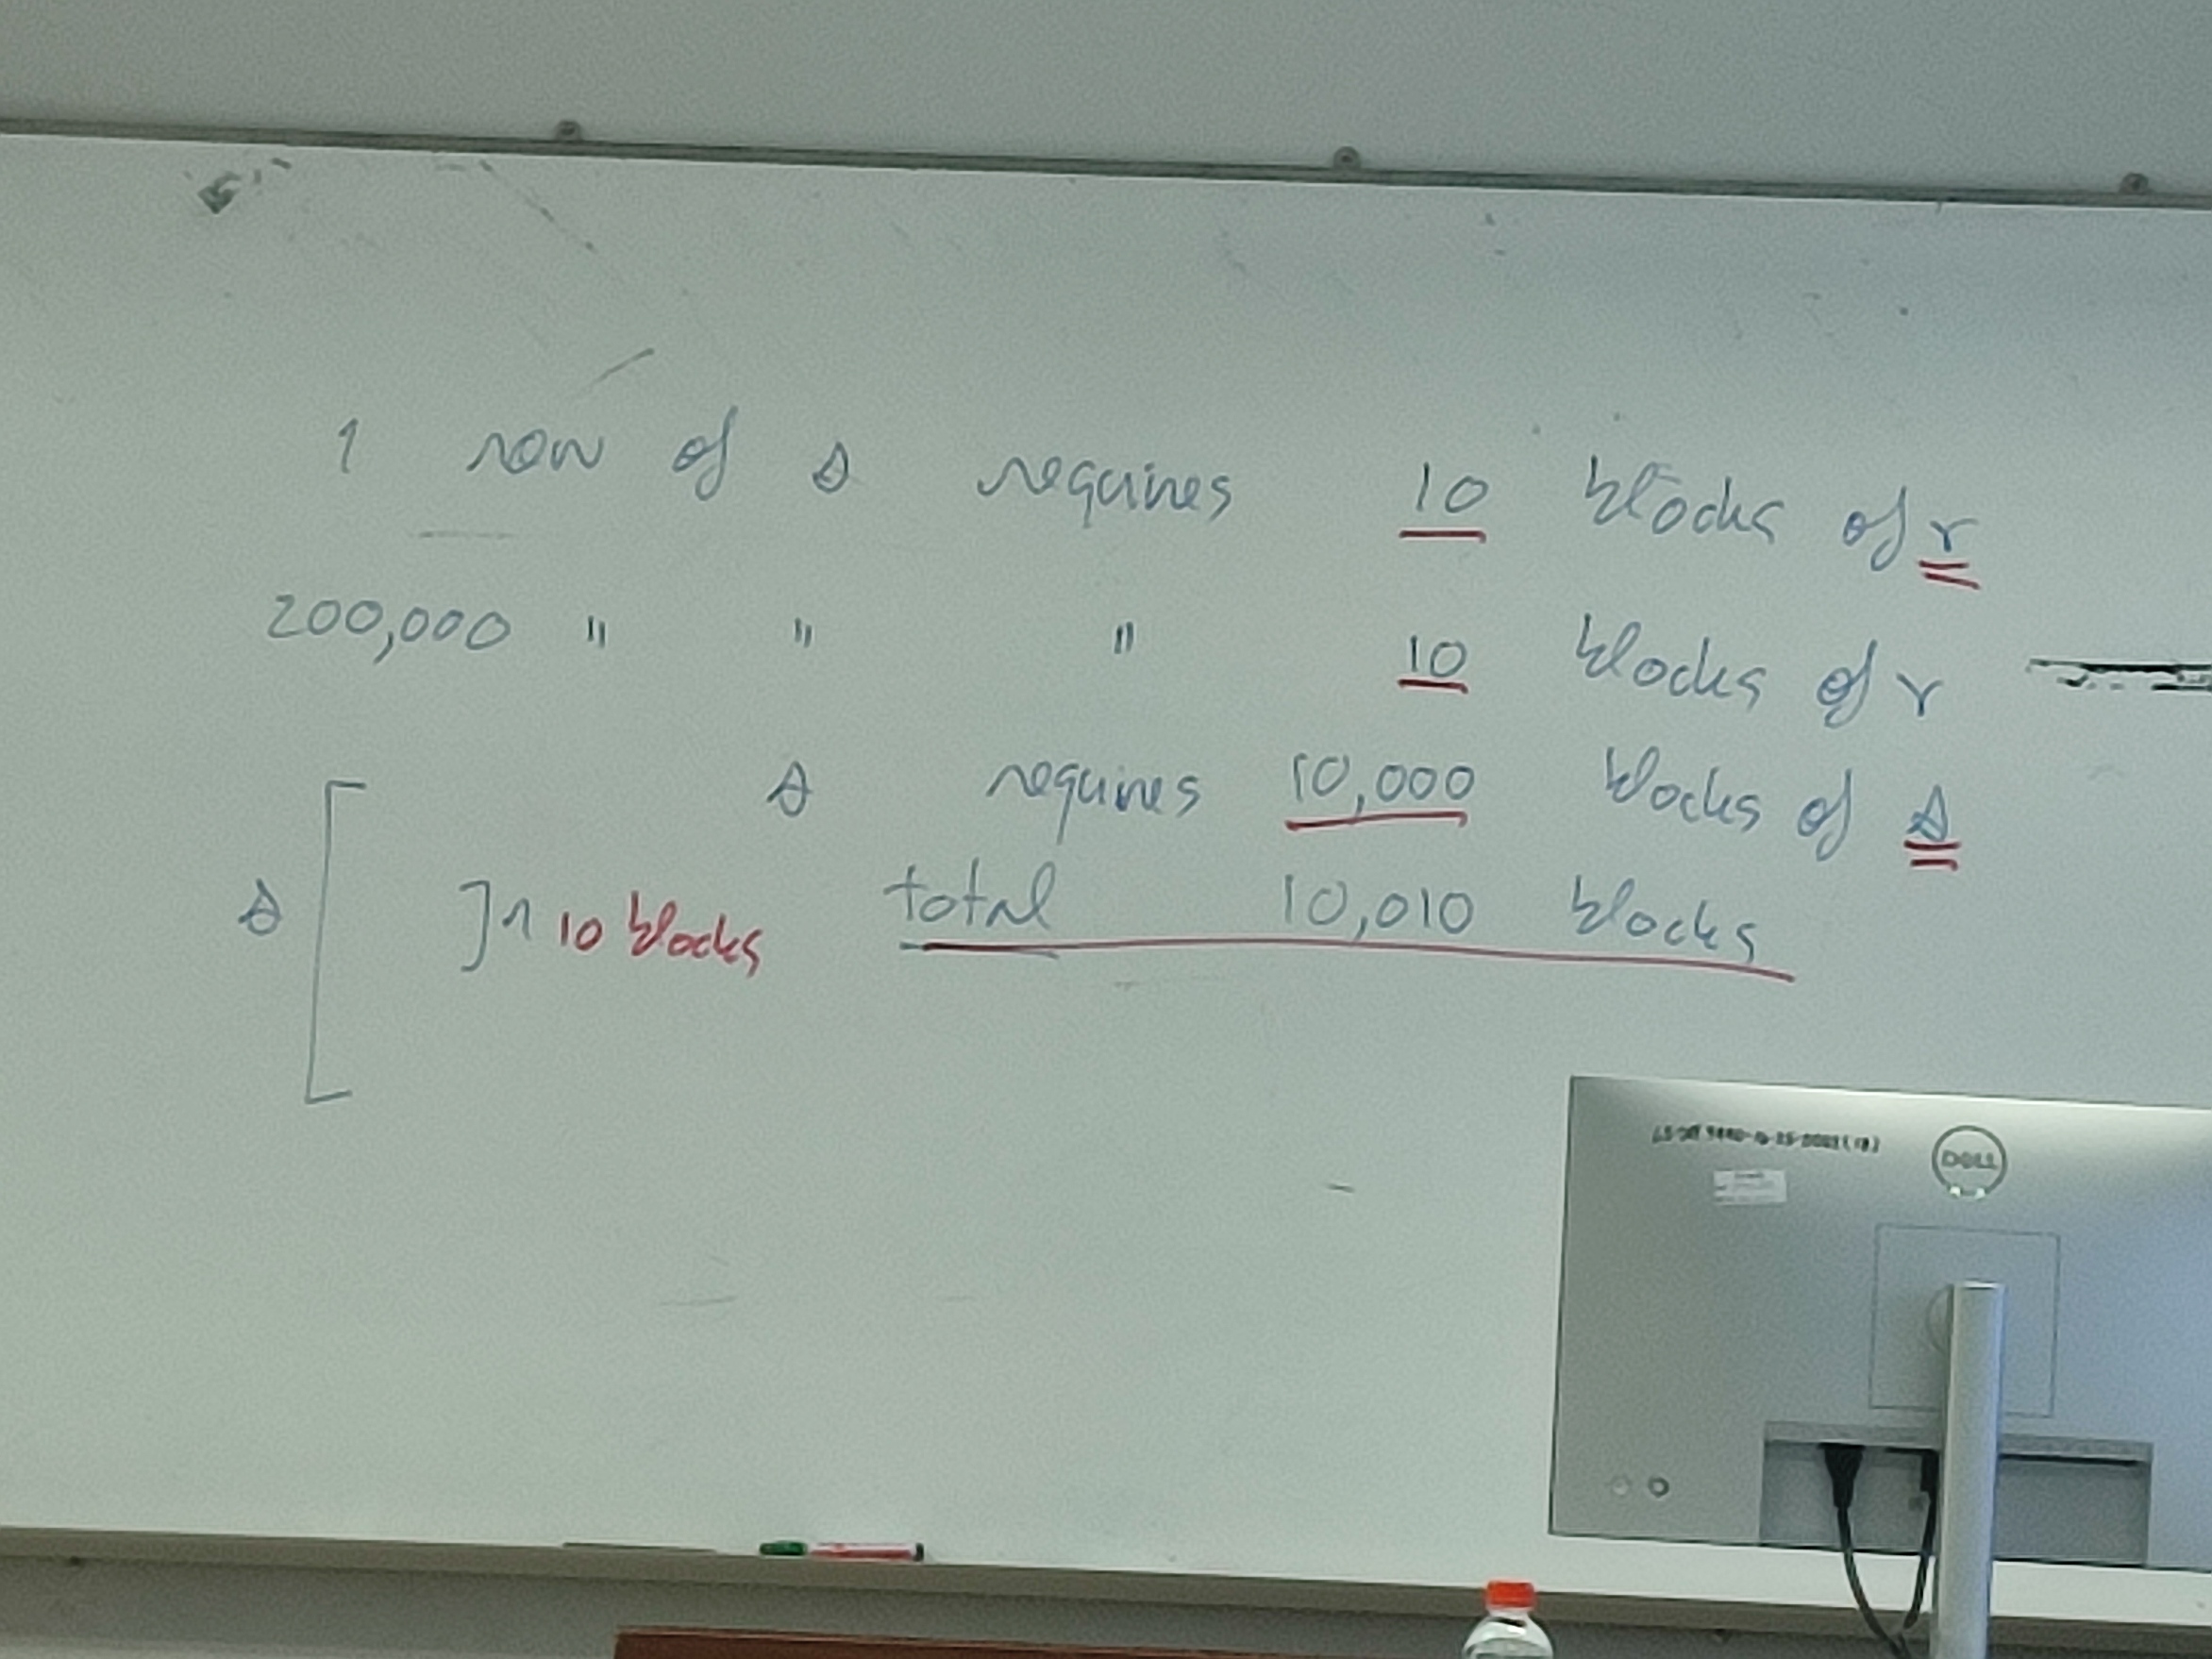 1 row of s requires 10 blocks of r
200,000 " " " 10 blocks of r
s requires 10,000 blocks of s
s [ ] r 10 blocks total 10,010 blocks
DELL